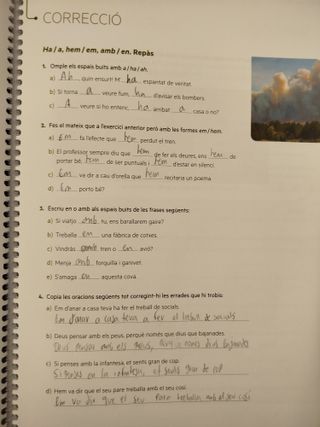 CORRECCIÓ
Ha / a, hem / em, amb / en. Repàs
1. Omple els espais buits amb a / ha / ah.
a) Ah quin ensurt! M' ha espantat de veritat.
b) Si torna a veure fum, ha d'avisar els bombers.
c) A veure si ho entenc, ha arribat a casa o no?
2. Fes el mateix que a l'exercici anterior però amb les formes em / hem.
a) Em fa l'efecte que hem perdut el tren.
b) El professor sempre diu que hem de fer als deures, ens hem de
portar bé, hem de ser puntuals i hem d'estar en silenci.
c) Em va dir a cau d'orella que hem recitaria un poema.
d) Em porto bé?
3. Escriu en o amb als espais buits de les frases següents:
a) Si viatjo amb tu, ens barallarem gaire?
b) Treballa em una fàbrica de cotxes.
c) Vindràs amb tren o en avió?
d) Menja amb forquilla i ganivet.
e) S'amaga en aquesta cova.
4. Copia les oracions següents tot corregint-hi les errades que hi trobis:
a) Em d'anar a casa teva ha fer el treball de socials.
Em d'anar a casa teva a fer el treball de socials
b) Deus pensar amb els meus, perquè només que dius que bajanades.
Deus pensar amb els meus, només dius bajanades
c) Si penses amb la infantesa, et sents gran de cop.
Si penses en la infantesa, et sents gran de cop
d) Hem va dir que el seu pare treballa amb el seu cosí.
Em va dir que el seu pare treballa amb el seu cosí